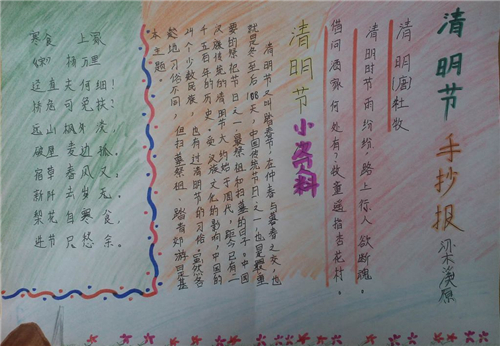 清明节手抄报
清明 杜牧
清明时节雨纷纷，路上行人欲断魂。
借问酒家何处有？牧童遥指杏花村。
清明节小资料
清明节又叫踏青节，在仲春与暮春之交，也
就是冬至后108天，中国传统节日之一，也是最重
要的祭祀节日之一，是祭祖和扫墓的日子。中国
汉族传统的清明节大约始于周代，距今已有二
千五百年的历史。受汉族文化的影响，中国的
24个少数民族，也有过清明节的习俗。虽然各
地习俗不同，但扫墓祭祖、踏青郊游是基
本主题。
寒食 上冢
(宋) 杨万里
迳直夫何细！
桥危可免扶？
远山枫外淡，
破屋麦边孤。
宿草春风又，
新阡去岁无。
梨花自寒食，
进节只愁余。